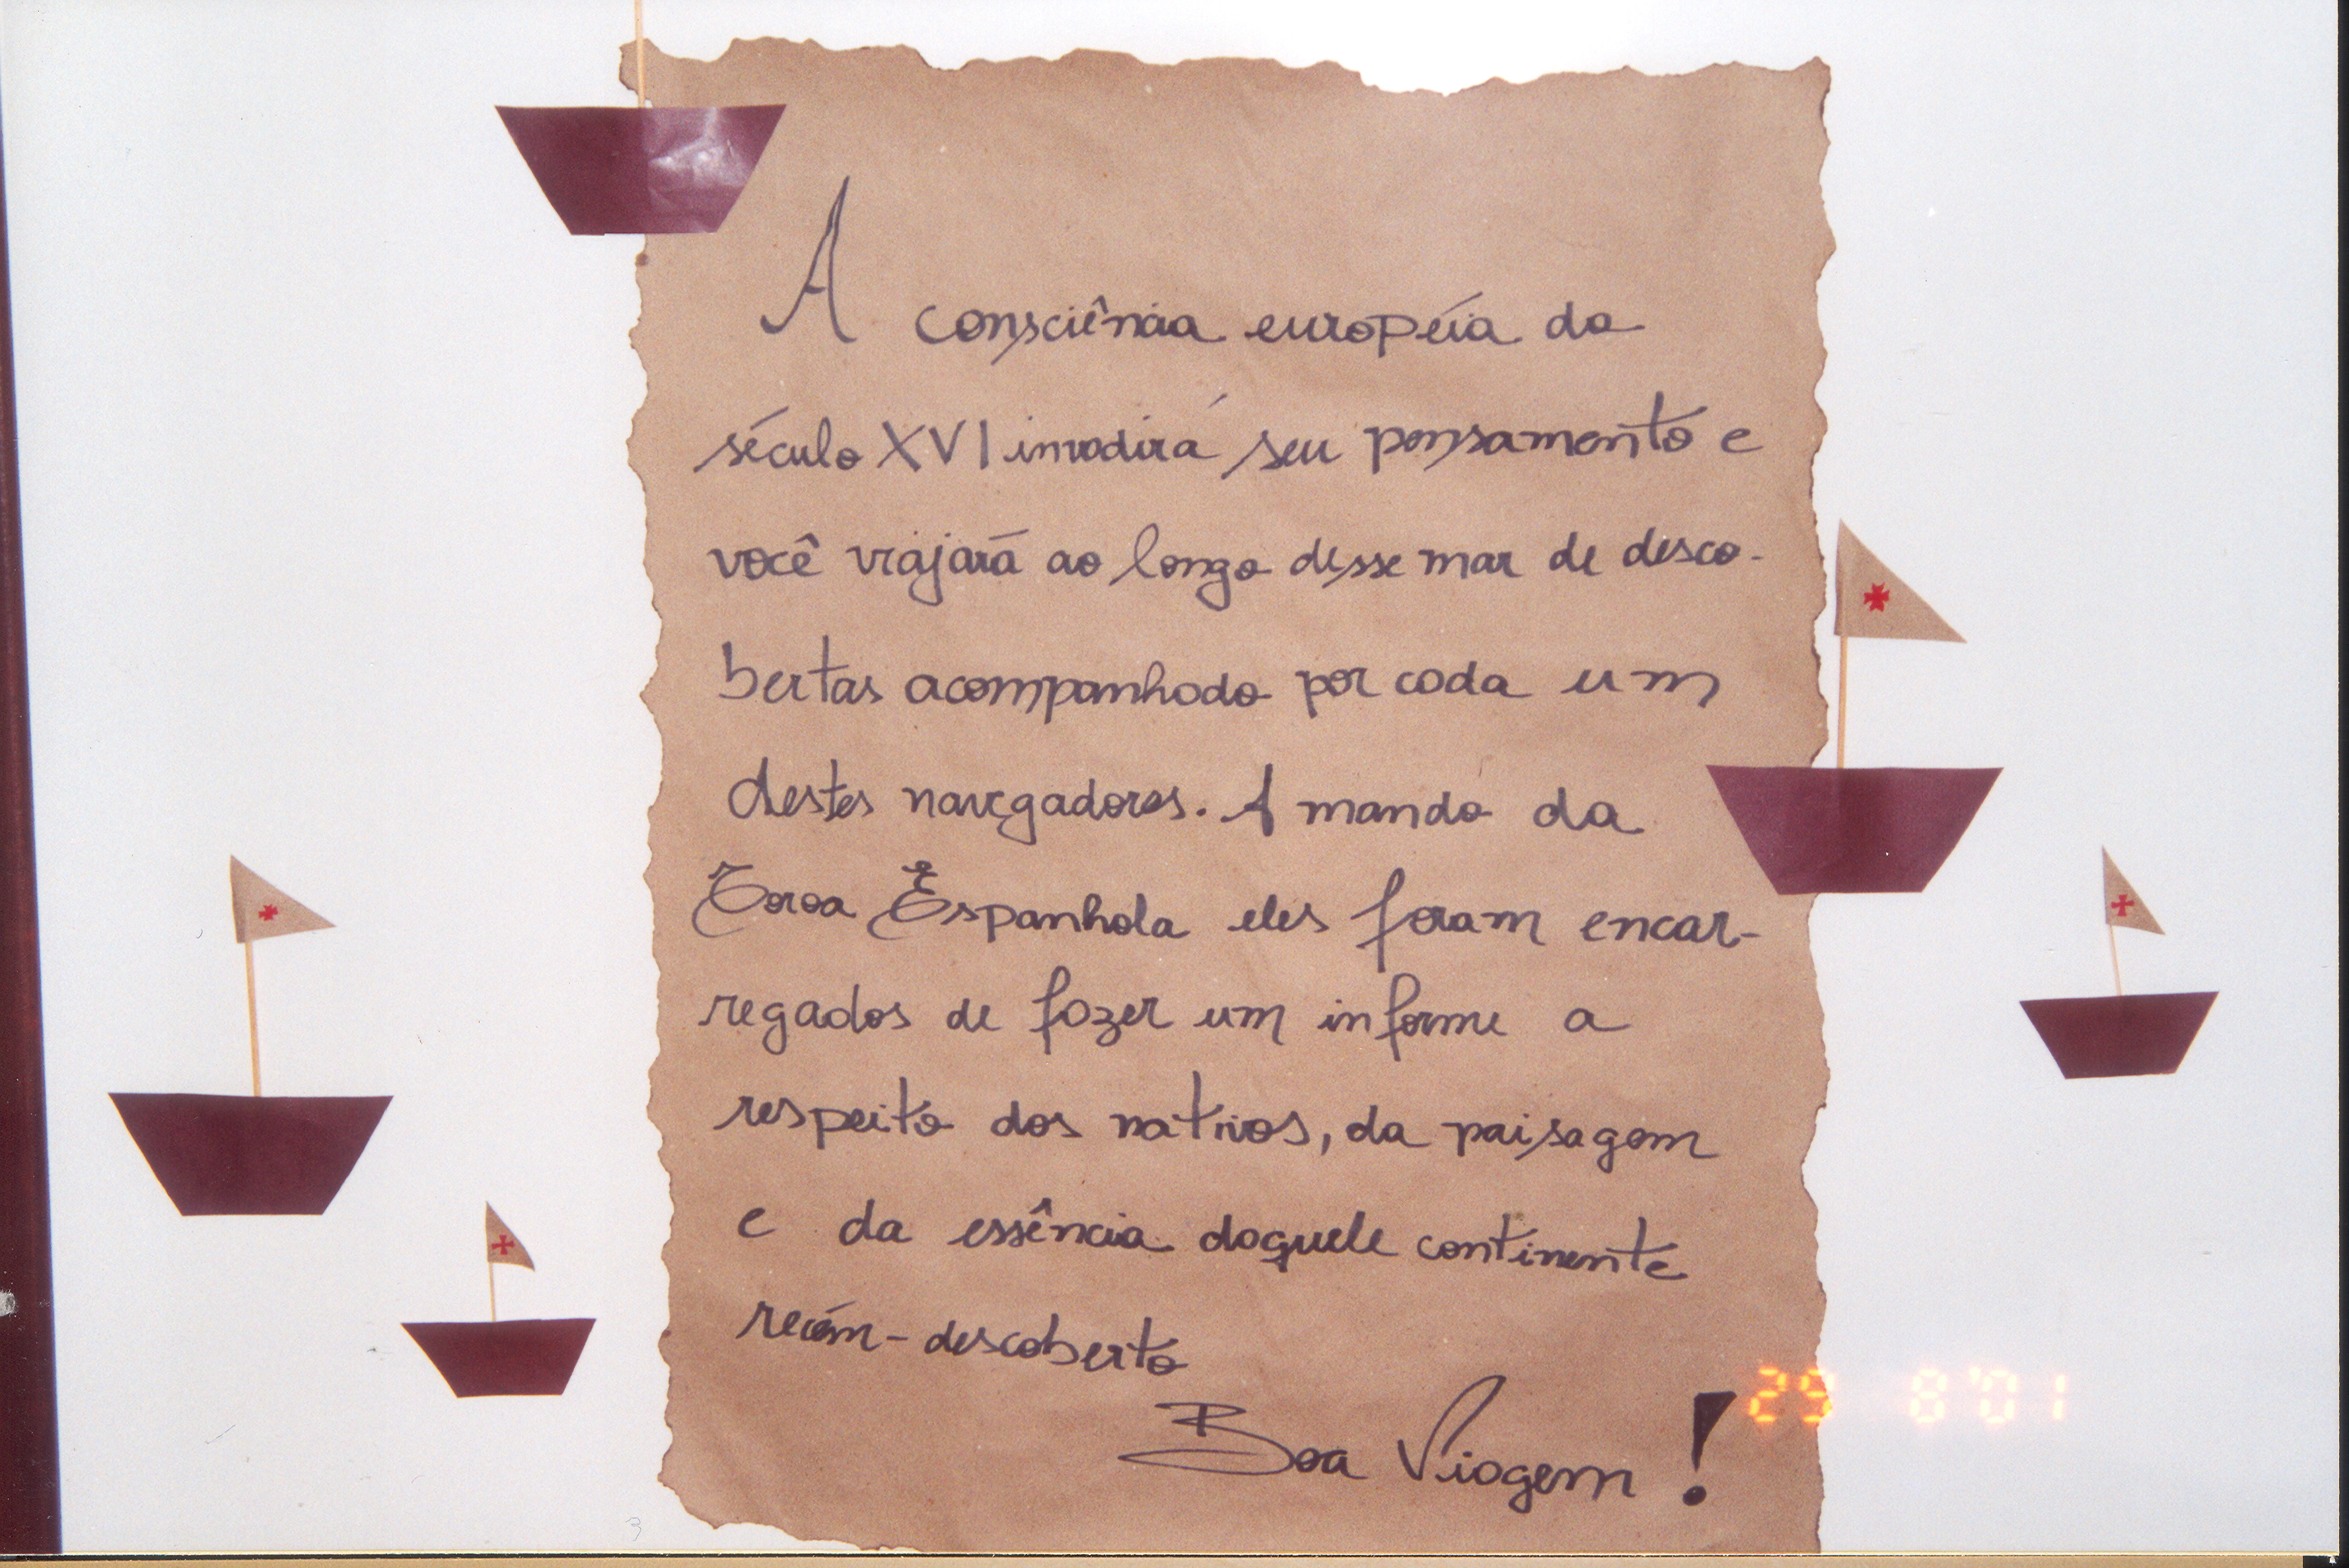 A consciência européia do
século XVI invadirá seu pensamento e
você viajará ao longo desse mar de desco-
bertas acompanhado por cada um
destes navegadores. A mando da
Coroa Espanhola eles foram encar-
regados de fazer um informe a
respeito dos nativos, da paisagem
e da essência daquele continente
recém-descoberto
Boa Viagem!
29 8'01
3